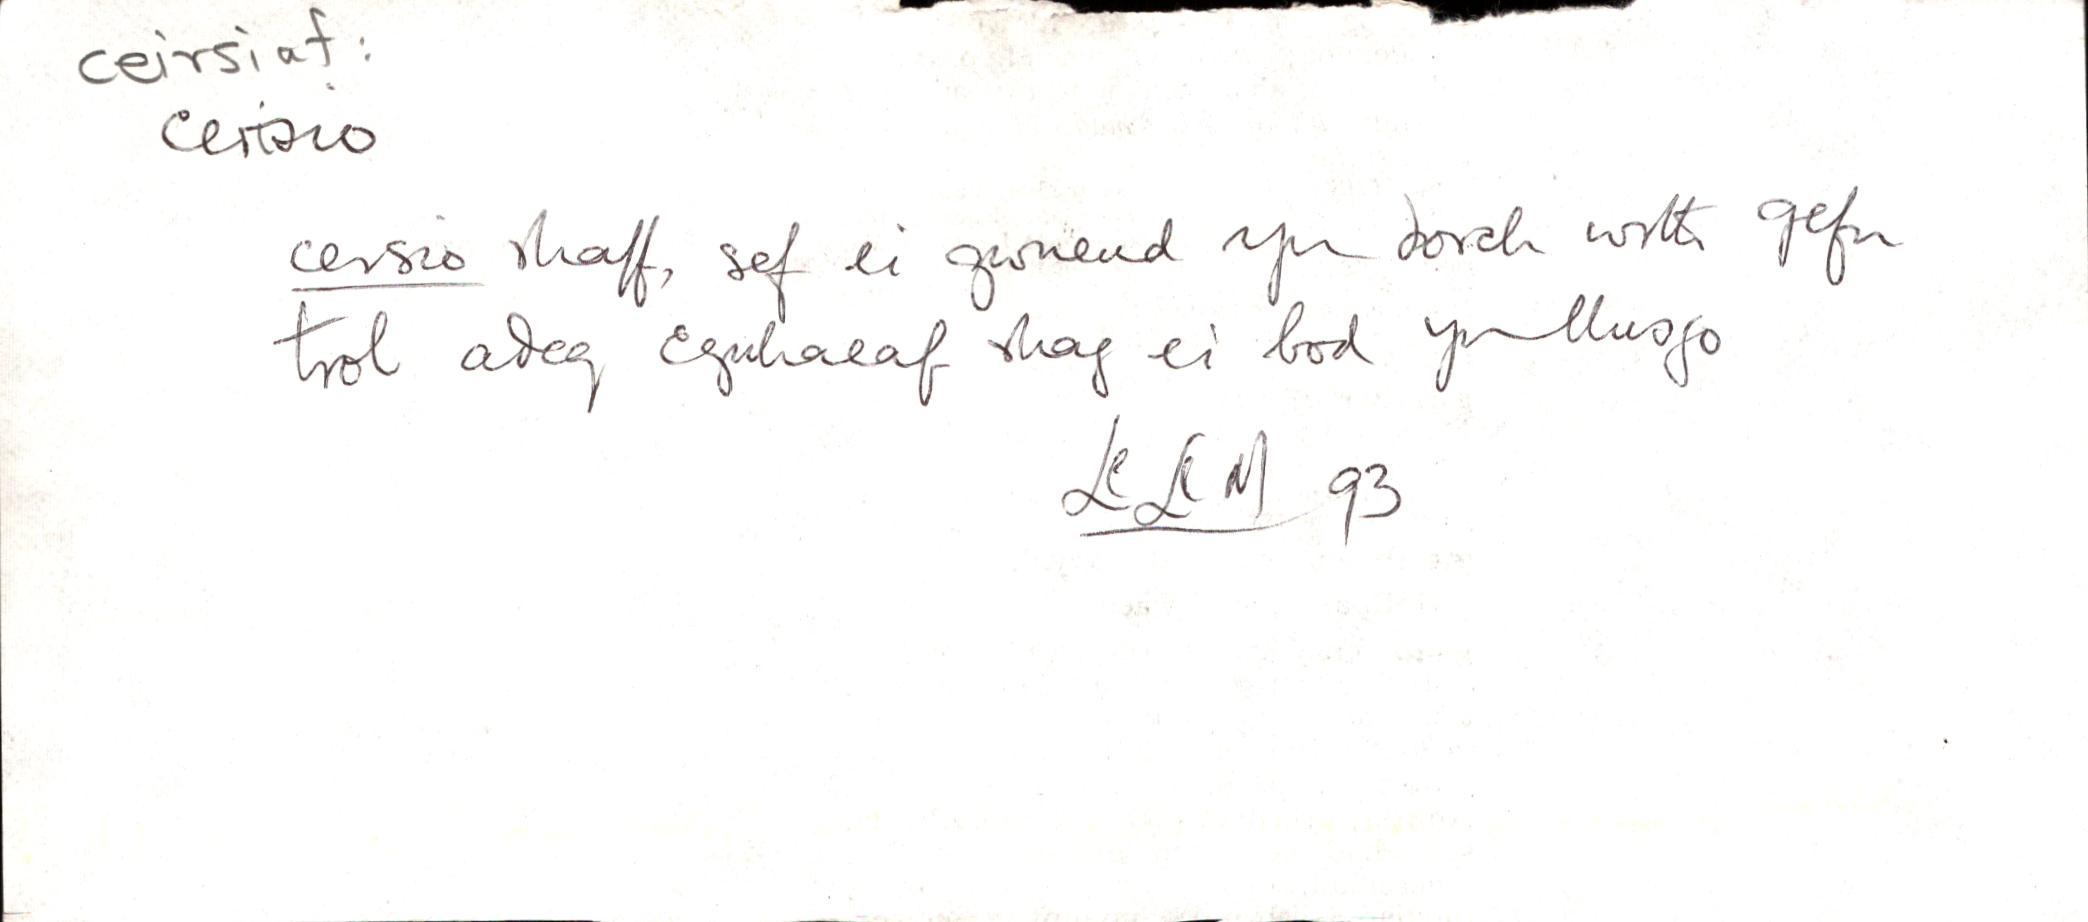 ceirsiaf:
cersio
cersio rhaff, sef ei gwneud yn dorch wrth gefn
trol adeg cynhaeaf rhag ei bod yn llusgo
Ll Ll M 93